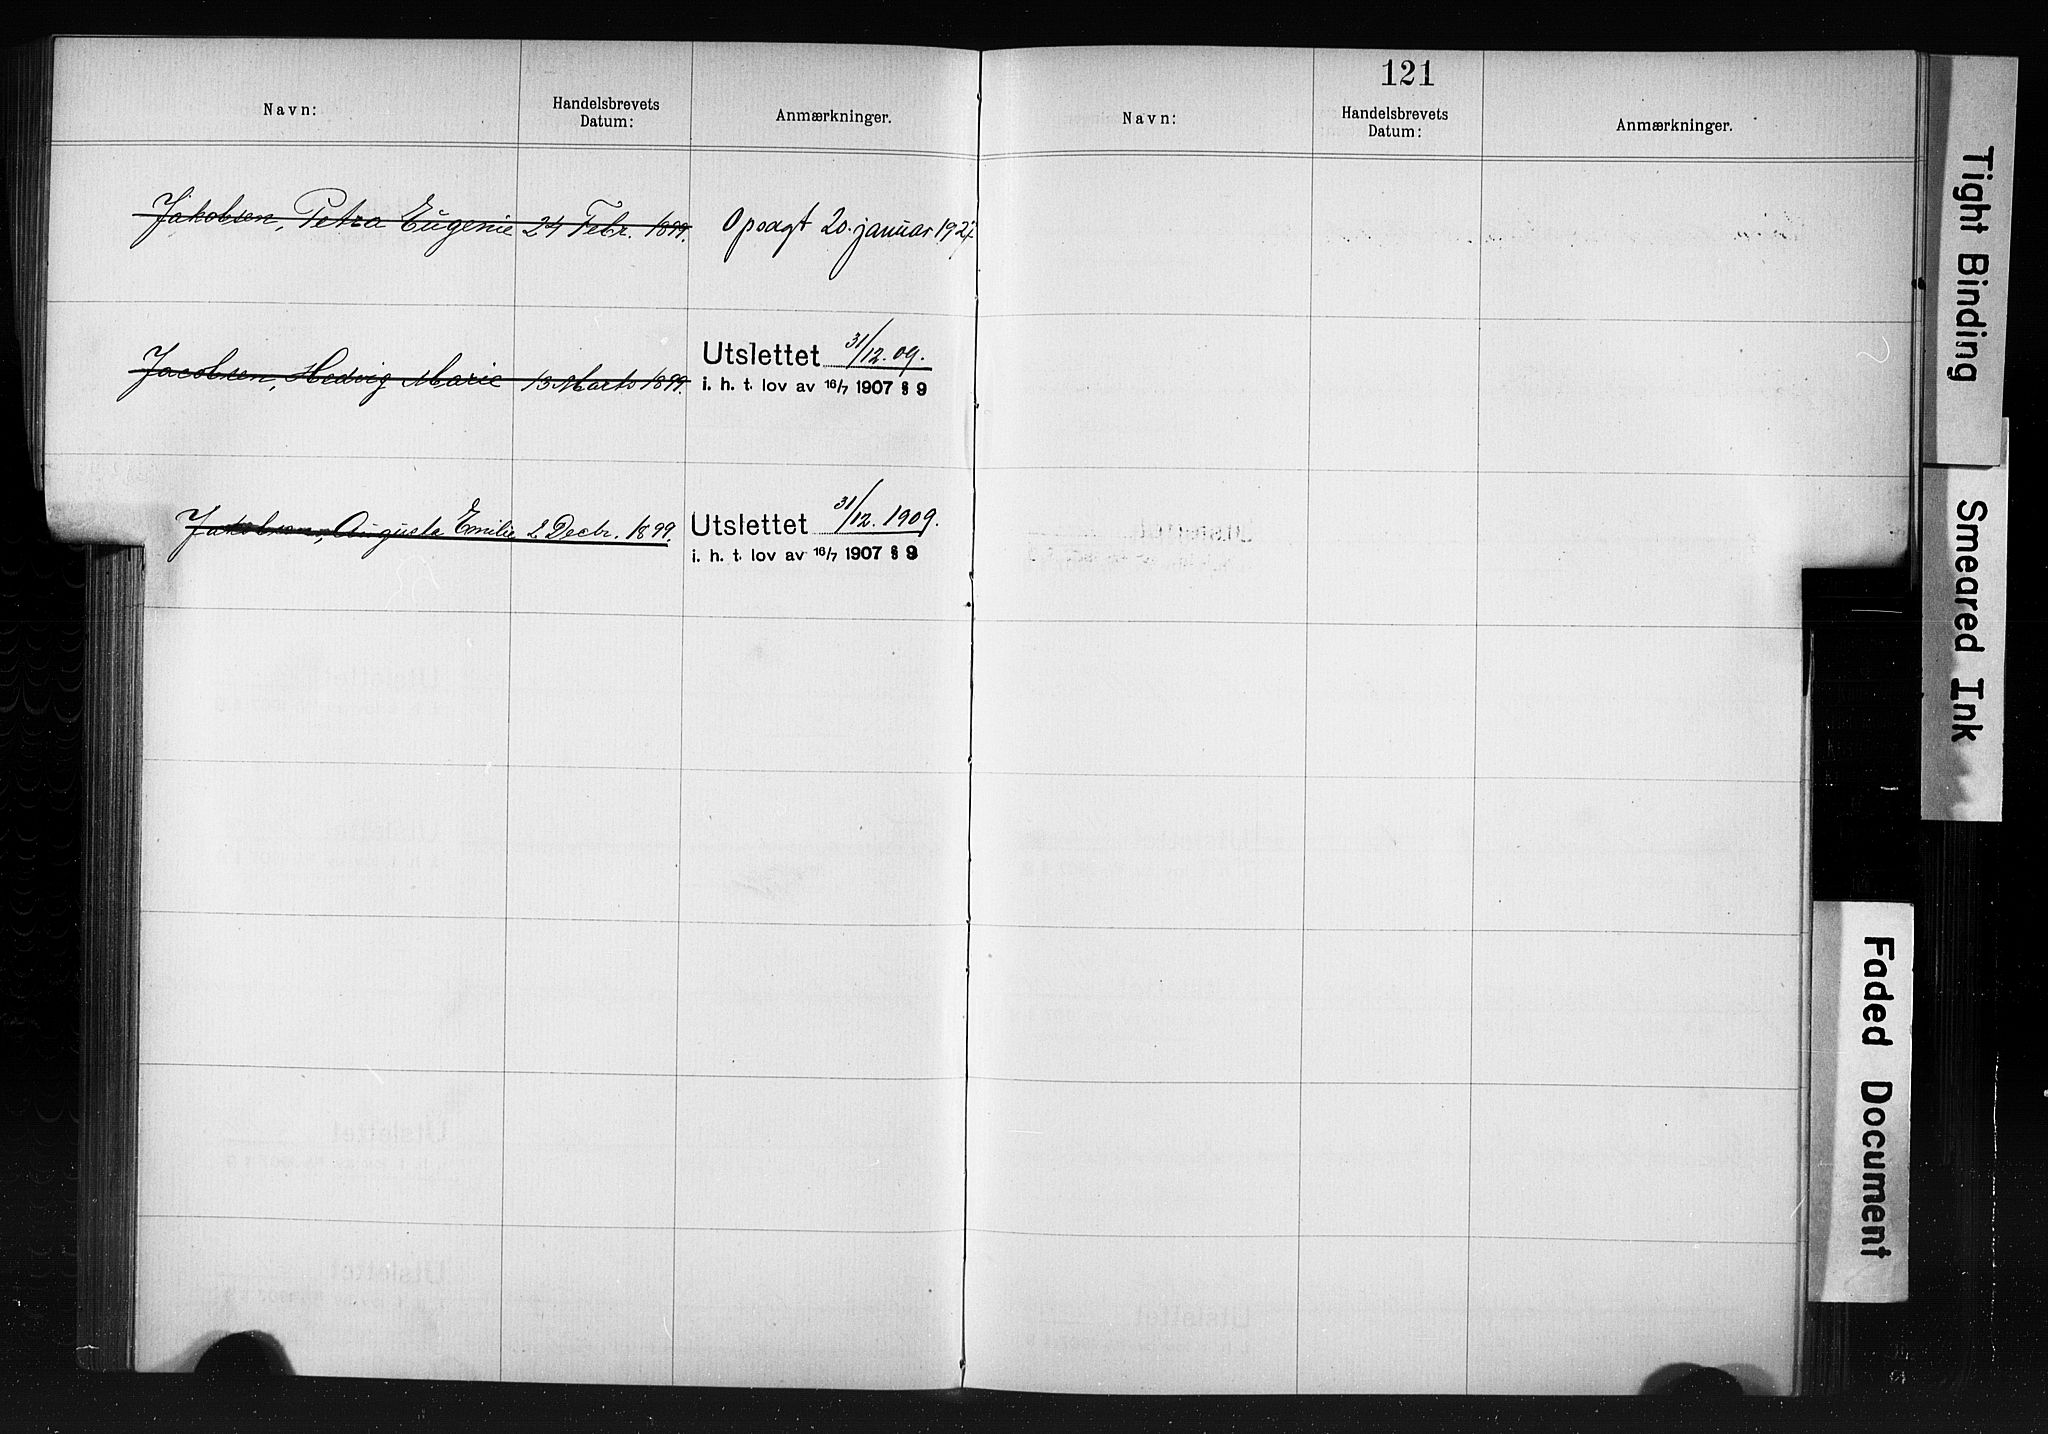 Navn: Handelsbrevets Datum: Anmærkninger.
Jakobsen, Petra Eugenie 24 Febr. 1899. Opsagt 20. januar 1927.
Jacobsen, Hedvig Marie 13 Marts 1899. Utslettet 31/12. 09.
i. h. t. lov av 16/7 1907 § 9
Jakobsen, Augusta Emilie 2 Decbr. 1899. Utslettet 31/12. 1909.
i. h. t. lov av 16/7 1907 § 9
121
Navn: Handelsbrevets Datum: Anmærkninger.
Tight Binding
Smeared Ink
Faded Document